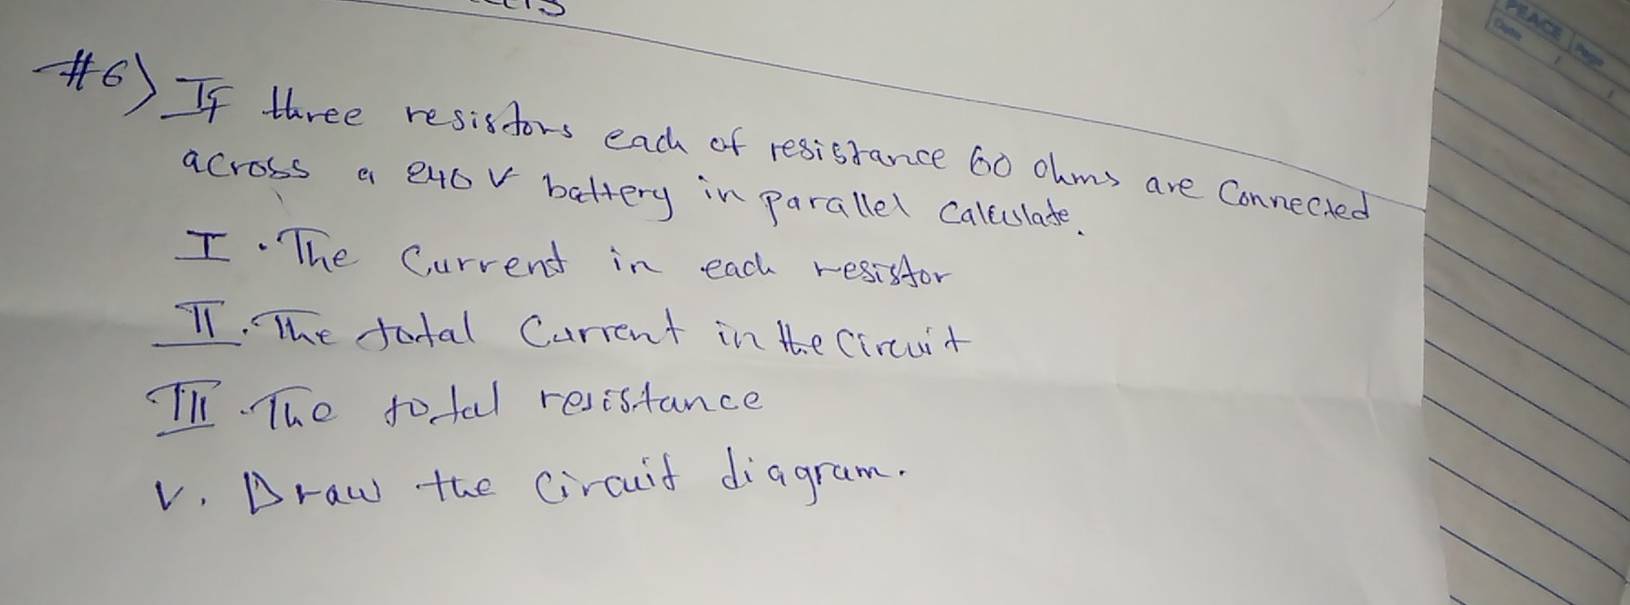 #6) If three resistors each of resistance 60 ohms are Connected
across a 240 V battery in parallel Calculate.
I. The Current in each resistor
II. The total Current in the Circuit
III. The total resistance
V. Draw the Circuit diagram.
PEACE Page
Date